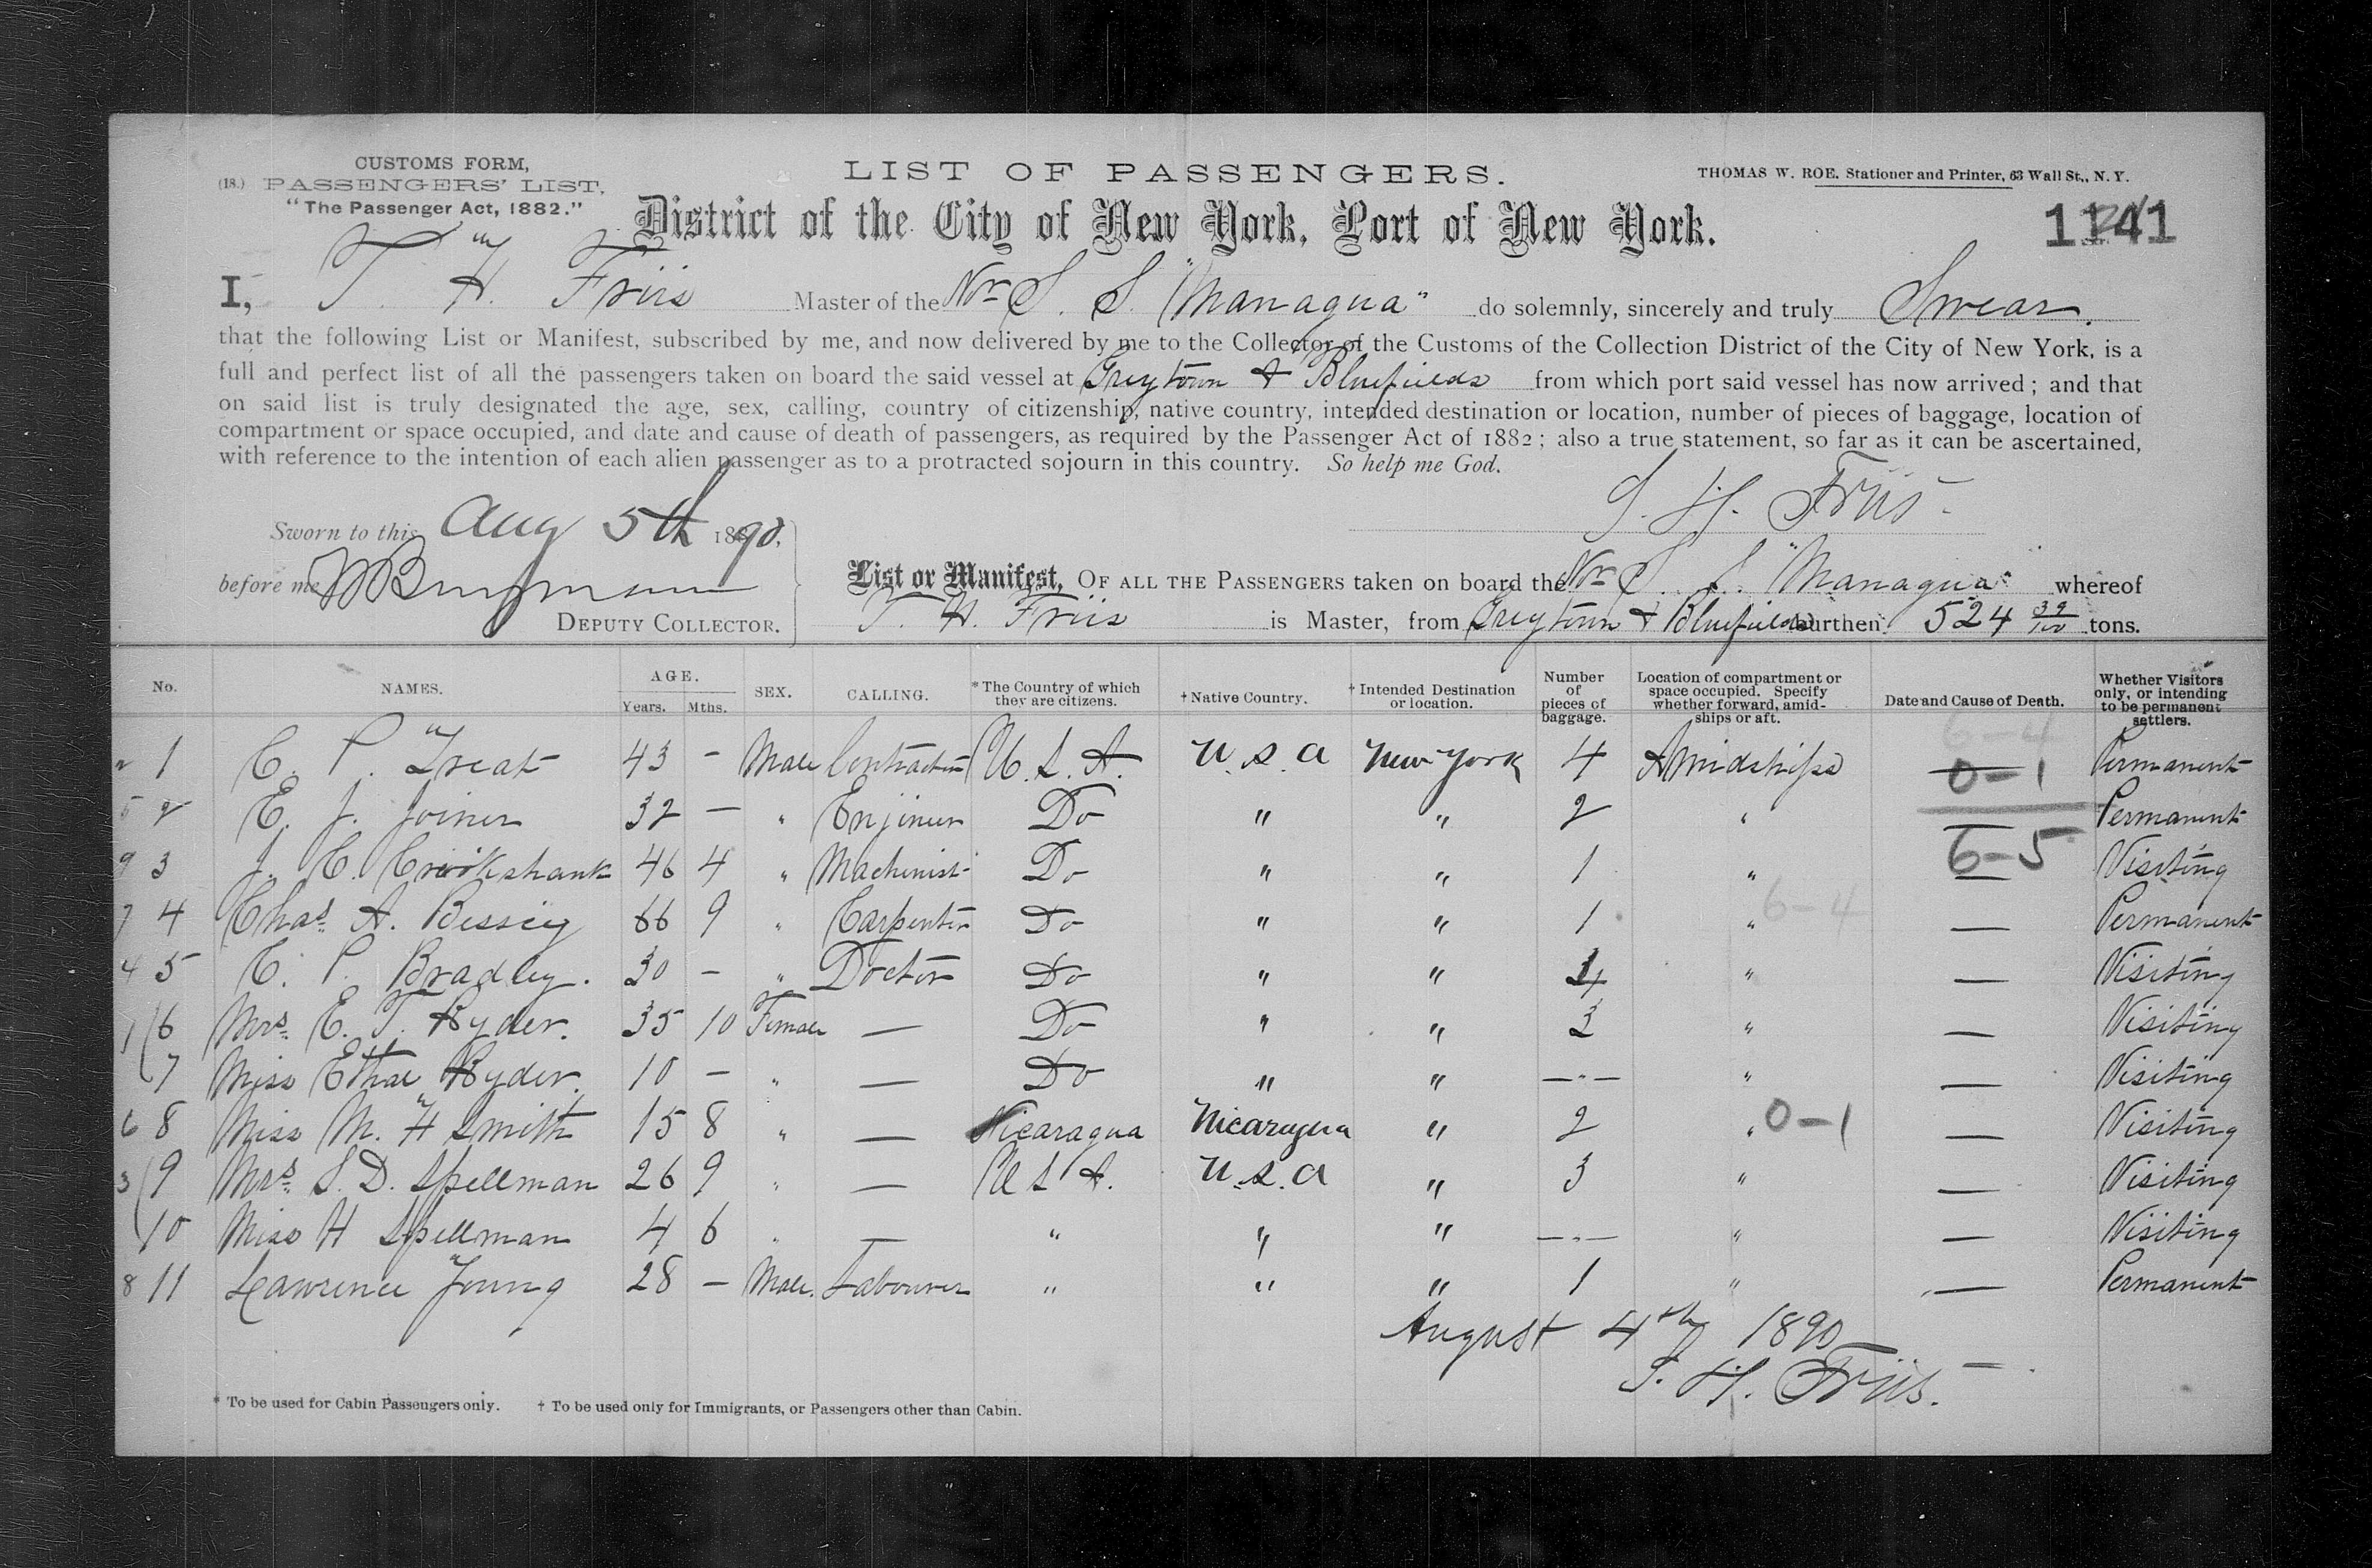 CUSTOMS FORM,
(18.) PASSENGERS' LIST.
"The Passenger Act, 1882."
LIST OF PASSENGERS.
THOMAS W. ROE. Stationer and Printer, 63 Wall St., N. Y.
District of the City of New York, Port of New York.
1141
I, T. H. Friis Master of the Nr S. S. "Managua" do solemnly, sincerely and truly Swear.
that the following List or Manifest, subscribed by me, and now delivered by me to the Collector of the Customs of the Collection District of the City of New York, is a
full and perfect list of all the passengers taken on board the said vessel at Greytown & Bluefields from which port said vessel has now arrived; and that
on said list is truly designated the age, sex, calling, country of citizenship, native country, intended destination or location, number of pieces of baggage, location of
compartment or space occupied, and date and cause of death of passengers, as required by the Passenger Act of 1882; also a true statement, so far as it can be ascertained,
with reference to the intention of each alien passenger as to a protracted sojourn in this country. So help me God.
T. H. Friis
Sworn to this Aug 5th 1890,
before me
DEPUTY COLLECTOR.
List or Manifest, OF ALL THE PASSENGERS taken on board the Nr S. S. "Managua" whereof
T. H. Friis is Master, from Greytown & Bluefields burthen 524 39/100 tons.
No. NAMES. AGE. Years. Mths. SEX. CALLING. * The Country of which they are citizens. † Native Country. † Intended Destination or location. Number of pieces of baggage. Location of compartment or space occupied. Specify whether forward, amidships or aft. Date and Cause of Death. Whether Visitors only, or intending to be permanent settlers.
6-4
2 1 C. P. Treat 43 - Male Contractor U. S. A. U.S.A New York 4 Amidships — 0-1 Permanent
5 2 E. J. Joiner 32 — " Enjineer Do " " 2 " — Permanent
9 3 J. C. Crookshank 46 4 " Machinist Do " " 1 " — 6-5 Visiting
7 4 Chas. A. Bessey 66 9 " Carpenter Do " " 1 " 6-4 — Permanent
4 5 C. P. Bradley. 30 - " Doctor Do " " 4 " — Visiting
1 6 Mrs. E. T. Ryder. 35 10 Female — Do " " 3 " — Visiting
7 Miss Ethae Ryder. 10 - " — Do " " —"— " — Visiting
6 8 Miss M. H Smith 15 8 " — Nicaragua Nicaragua " 2 " 0-1 — Visiting
3 9 Mrs. S. D. Spellman 26 9 " — U S A. U.S.A " 3 " — Visiting
10 Miss H Spellman 4 6 " — " " " —"— " — Visiting
8 11 Lawrence Young 28 - Male. Labourer " " " 1 " — Permanent
August 4th 1890
T. H. Friis.
* To be used for Cabin Passengers only. † To be used only for Immigrants, or Passengers other than Cabin.